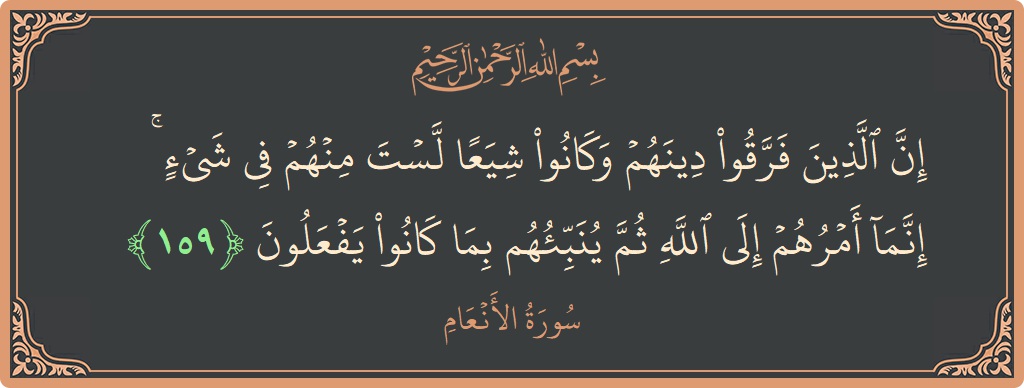 بِسْمِ اللَّهِ الرَّحْمَٰنِ الرَّحِيمِ
إِنَّ ٱلَّذِينَ فَرَّقُوا۟ دِينَهُمْ وَكَانُوا۟ شِيَعًا لَّسْتَ مِنْهُمْ فِى شَىْءٍ ۚ
إِنَّمَآ أَمْرُهُمْ إِلَى ٱللَّهِ ثُمَّ يُنَبِّئُهُم بِمَا كَانُوا۟ يَفْعَلُونَ ﴿١٥٩﴾
سُورَةُ الأَنْعَامِ